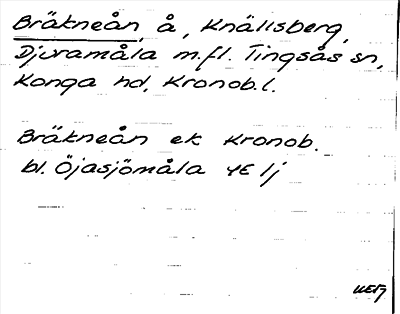 Bräkneån, å, Knällsberg,
Djuramåla m.fl. Tingsås sn,
Konga hd, Kronob.l.
Bräkneån ek Kronob.
bl. Öjasjömåla 4E 1j